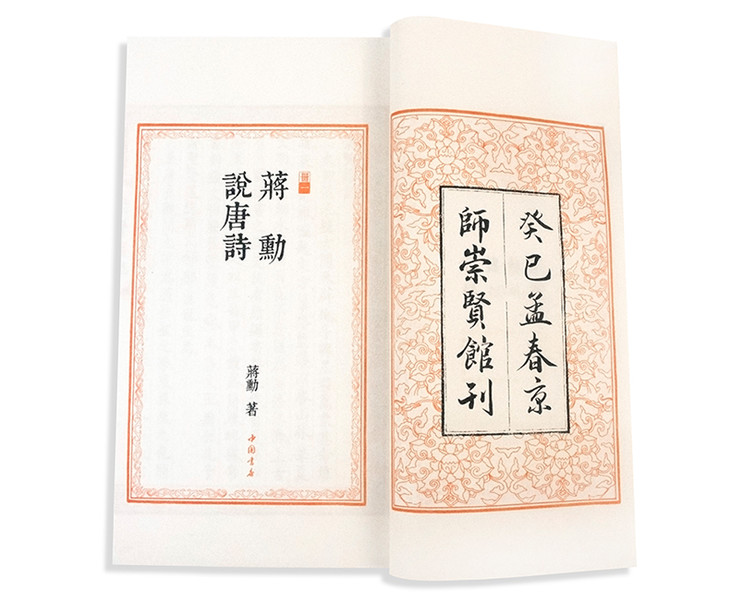 癸巳孟春京
師崇賢館刊
蔣勳
說唐詩
蔣勳 著
中国书店